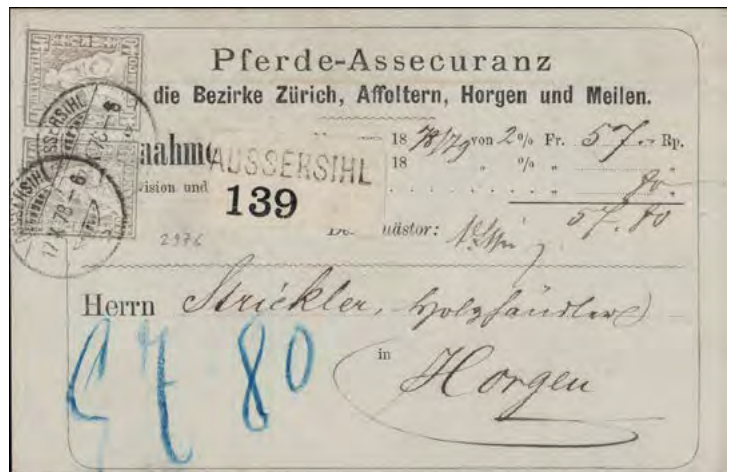 Pferde-Assecuranz
die Bezirke Zürich, Affoltern, Horgen und Meilen.
nahme 18 78/79 von 2 % Fr. 57 .- Rp.
AUSSERSIHL 18 " % " "
ision und 80 "
139 57. 80
2976 uästor:
AUSSERSIHL
17. X. 78 - 6
Herrn Strickler, Holzhändler
in
Horgen
57 80